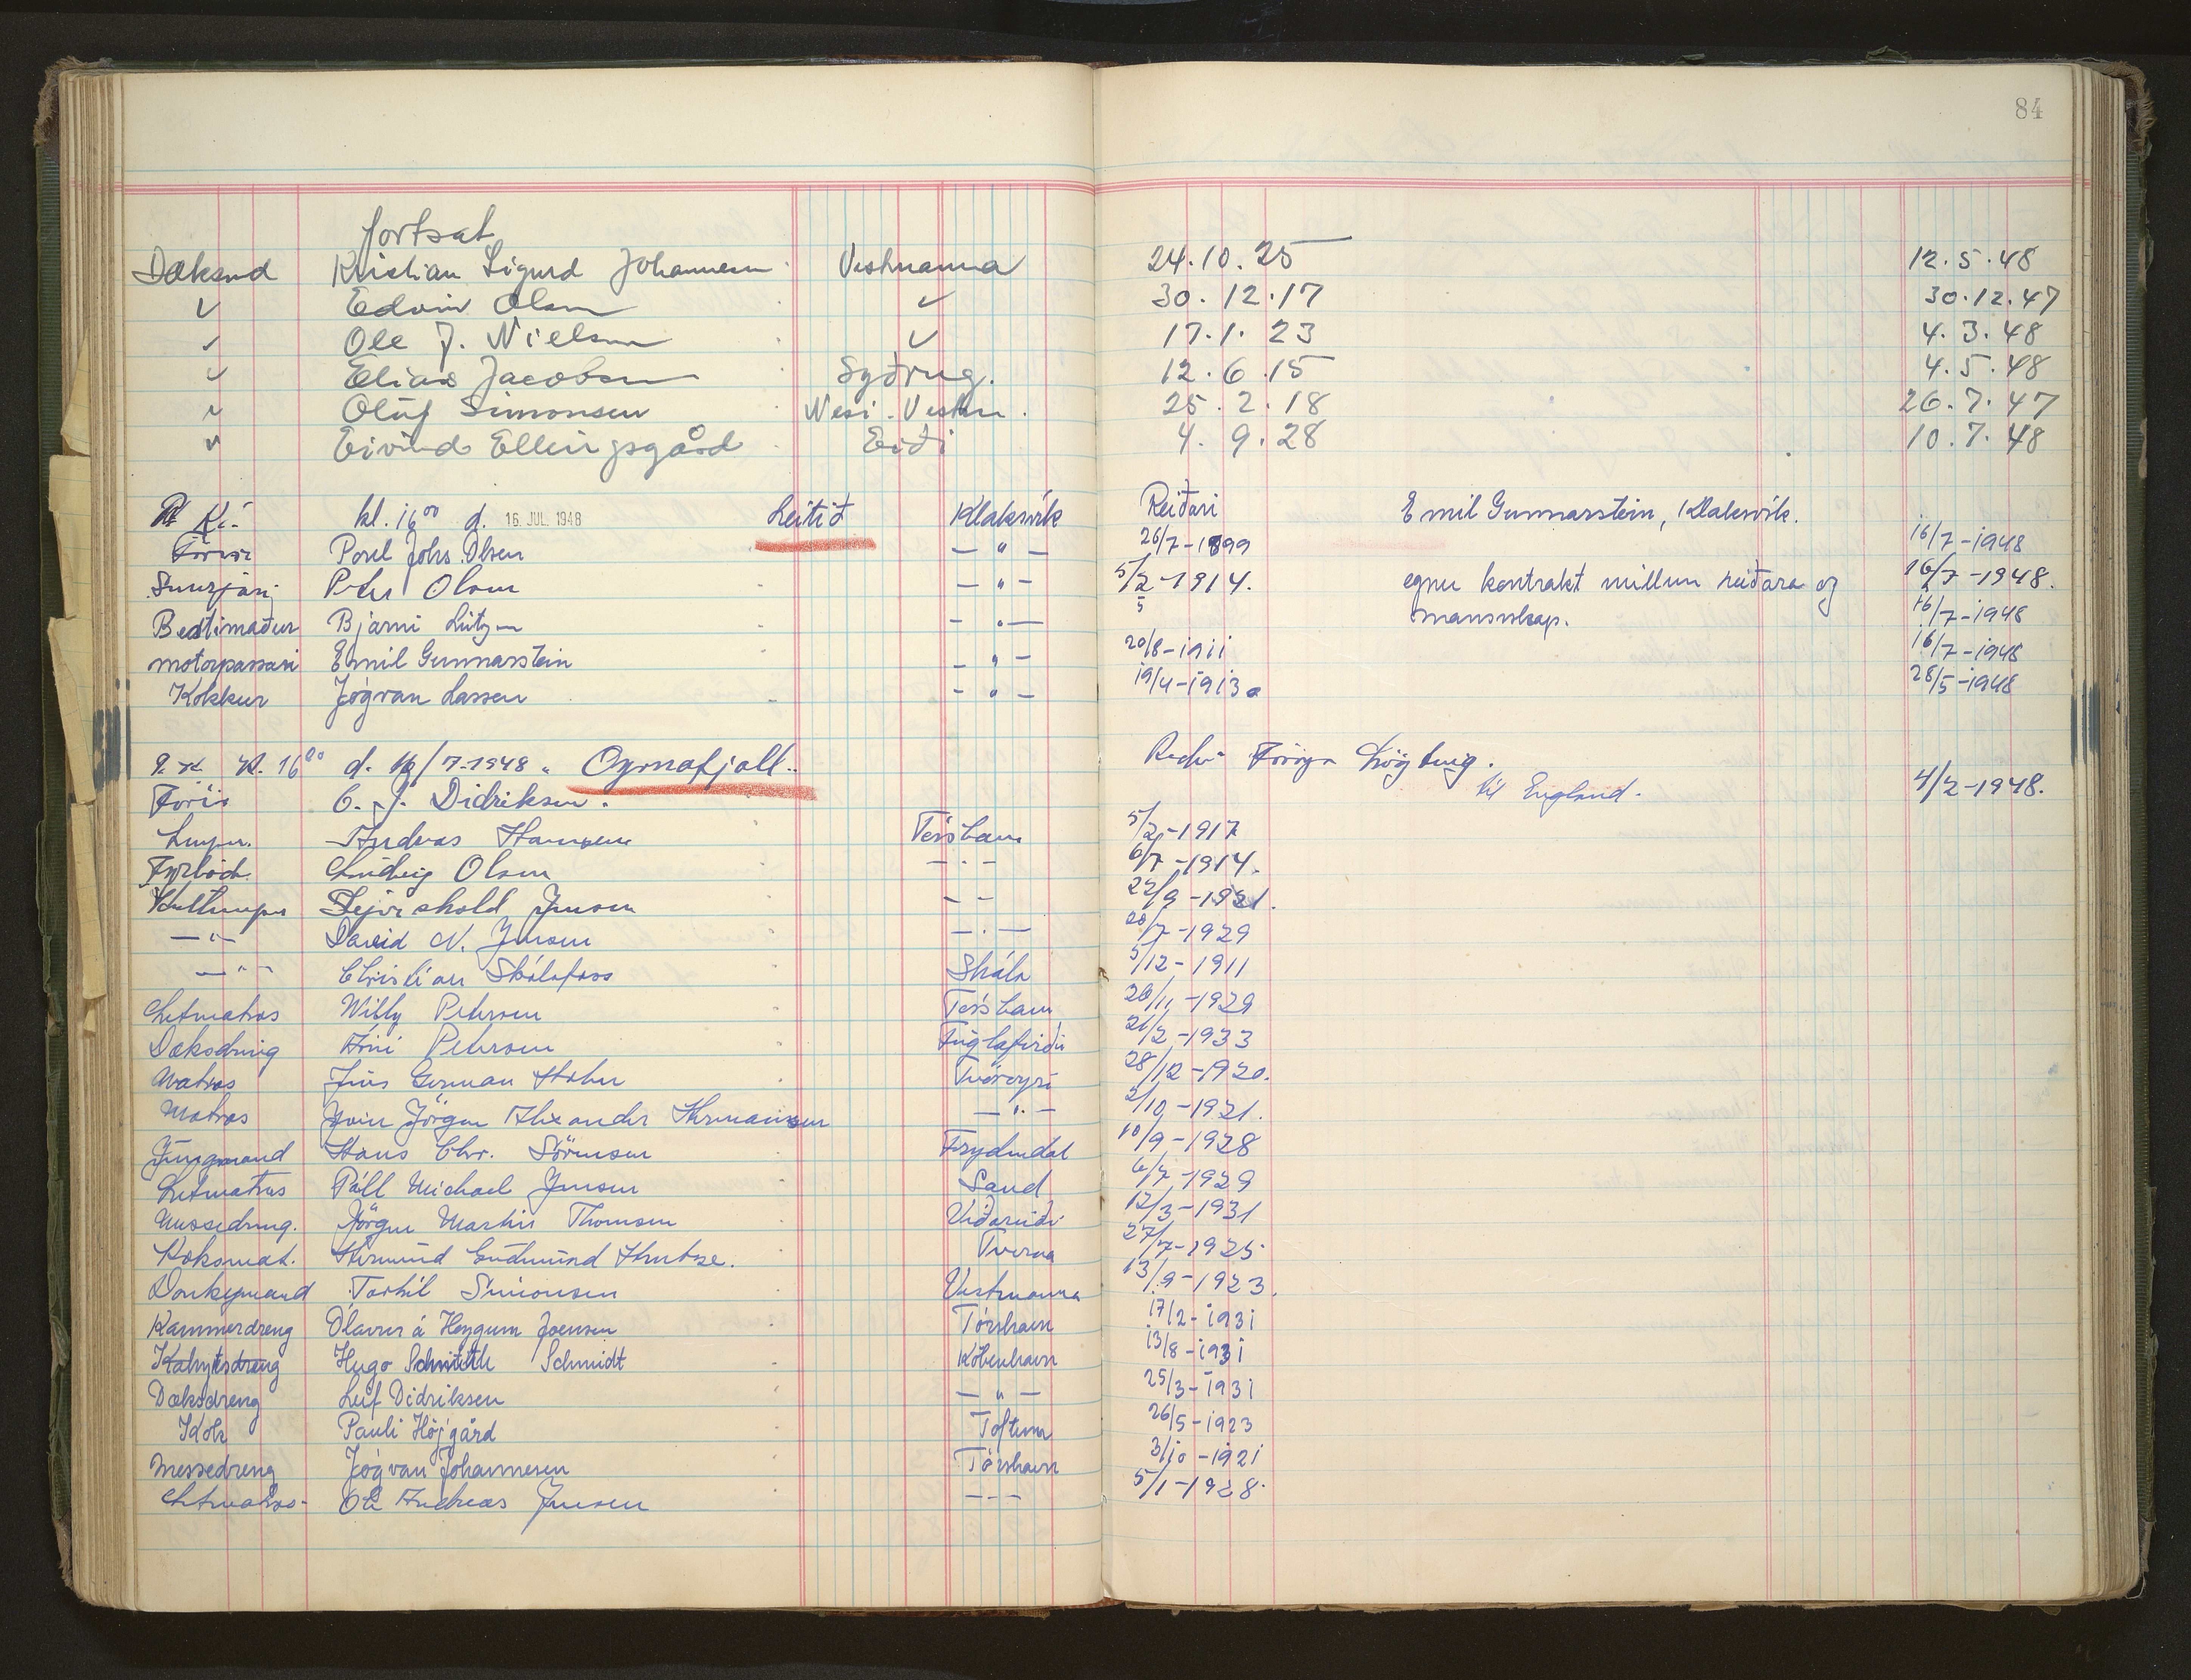 84
fortsat
Dæksmd Kristian Sigurd Johannesen Vestmanna 24.10.25 12.5.48
✓ Edvin Olsen ✓ 30.12.17 30.12.47
✓ Ole J. Nielsen ✓ 17.1.23 4.3.48
✓ Elias Jacobsen Syðrug. 12.6.15 4.5.48
✓ Olúf Simonsen Nesi. Vestm. 25.2.18 26.7.47
✓ Eivind Ellingsgård Eiði 4.9.28 10.7.48
Kl. kl. 16⁰⁰ d. 16. JUL. 1948 Leitið Klaksvík Reiðari Emil Gunnarstein, Klaksvík.
Förari Poul Johs. Olsen — " — 26/7-1899 16/7-1948
Smurjari Peter Olsen — " — 5/2-1914. egnu kontrakt millum reiðara og 16/7-1948.
Bestimaður Bjarni Lützen — " — 5 mansskap. 16/7-1948
motorpassari Emil Gunnarstein — " — 20/8-1911 16/7-1948
Kokkur Jógvan Lassen — " — 19/4-1913 28/5-1948
Kl. 16⁰⁰ d. 16/7-1948 Oyrnafjall. Føroya Lögting.
C. J. Didriksen. til England. 4/2-1948.
Andreas Hansen Tórshavn 5/2-1917
Fyrböd. Ludvig Olsen — " — 6/7-1914.
Kullemper Skjoldshold Jensen — — 22/9-1921.
— " — David N. Jensen — " — 20/7-1929
— " — Christian Skálafoss Skála 5/12-1911
Letmatros Willy Petersen Tórshavn 20/11-1929
Dæksdreng Árni Petersen Fuglafirði 21/2-1933
Matros Jens German Holm Tvöroyri 28/12-1920.
Matros Jörgen Alexander Hermansen — " — 2/10-1921.
Jungmand Hans Chr. Sörensen Frydendal 10/9-1928
Letmatros Páll Michael Jensen Sand 6/7-1929
Messedreng. Jörgen Martin Thomsen Viðareiði 12/3-1931
Koksmat. Hermund Gudmund Hentze. Tverá 27/7-1925
Donkeymand Torkil Simonsen Vestmanna 13/9-1923.
Kammerdreng Ólavur á Heygum Joensen Tórshavn 17/2-1931
Kahytsdreng Hugo Schmidt Köbenhavn 13/8-1931
Dæksdreng Leif Didriksen — " — 25/3-1931
Kok Pauli Höjgård Toftum 26/5-1923
Messedreng Jógvan Johannesen Tórshavn 3/10-1921
Letmatros Ole Andreas Jensen — — — 5/1-1928.